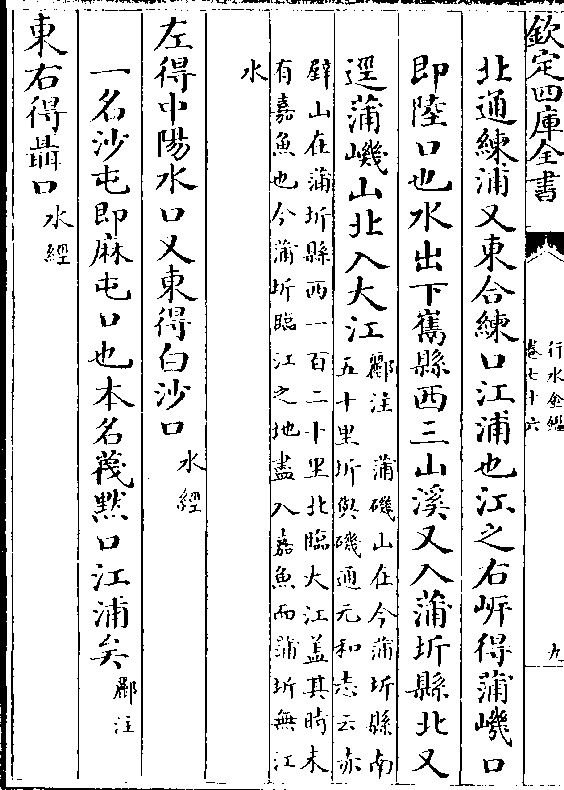 欽定四庫全書
行水金鑑
卷七十六
九
北通練浦又東合練口江浦也江之右岍得蒲磯口
即陸口也水出下雋縣西三山溪又入蒲圻縣北又
逕蒲磯山北入大江
酈注 蒲磯山在今蒲圻縣南
五十里圻與磯通元和志云赤
壁山在蒲圻縣西一百二十里北臨大江蓋其時未
有嘉魚也今蒲圻臨江之地盡入嘉魚而蒲圻無江
水
左得中陽水口又東得白沙口水經
一名沙屯即麻屯口也本名蔑默口江浦矣酈注
東右得聶口水經